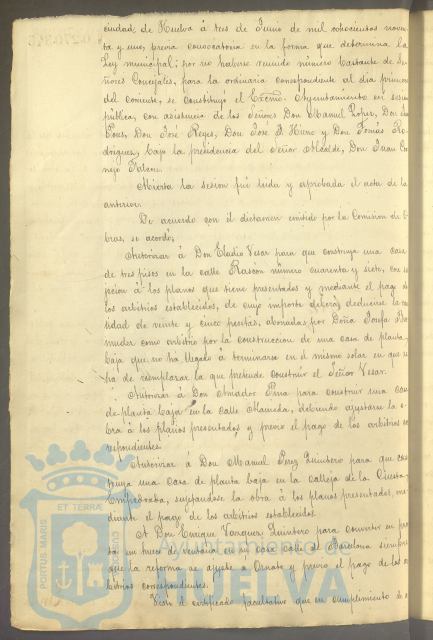 ciudad de Huelva á tres de Junio de mil ochocientos noven-
ta y uno, previa convocatoria en la forma que determina la
Ley municipal; por no haberse reunido número bastante de Se-
ñores Concejales, para la ordinaria correspondiente al dia primero
del corriente, se constituyó el Excmo. Ayuntamiento en sesion
pública, con asistencia de los Señores Don Manuel Don
Pons, Don José Reyes, Don José y Don Tomás Ro-
driguez, bajo la presidencia del Señor Alcalde, Don Juan Cor-
nejo
Abierta la sesion fué leida y aprobada el acta de la
anterior.
De acuerdo con el dictamen emitido por la Comision de O-
bras, se acordó;
Autorizar á Don Eladio Vesar para que construya una casa
de tres pisos en la calle Rascón número cuarenta y siete, con su-
jecion á los planos que tiene presentados y mediante el pago de
los arbitrios establecidos, de cuyo importe deberá deducirse la can-
tidad de veinte y cinco pesetas, abonadas por Doña Josefa
como arbitrio por la construccion de una casa de planta
baja que no ha llegado á terminarse en el mismo solar en que se
ha de reemplazar la que pretende construir el Señor Vesar.
Autorizar á Don Amador para construir una casa
de planta baja en la calle Alameda, debiendo ajustarse la o-
bra á los planos presentados y previo el pago de los arbitrios co-
rrespondientes.
Autorizar á Don Manuel Perez Quintero para que cons-
truya una casa de planta baja en la calleja de la Cuesta
Empedrada, sujetandose la obra á los planos presentados, me-
diante el pago de los arbitrios establecidos.
A Don Vazquez Quintero para convertir en puer-
ta un hueco de ventana en su casa calle de Barcelona siempre
que la reforma se ajuste á Ornato y previo el pago de los ar-
bitrios correspondientes.
el certificado facultativo que en cumplimiento de
PORTUS MARIS
ET TERRÆ
CUSTODIA
Ayuntamiento de
HUELVA